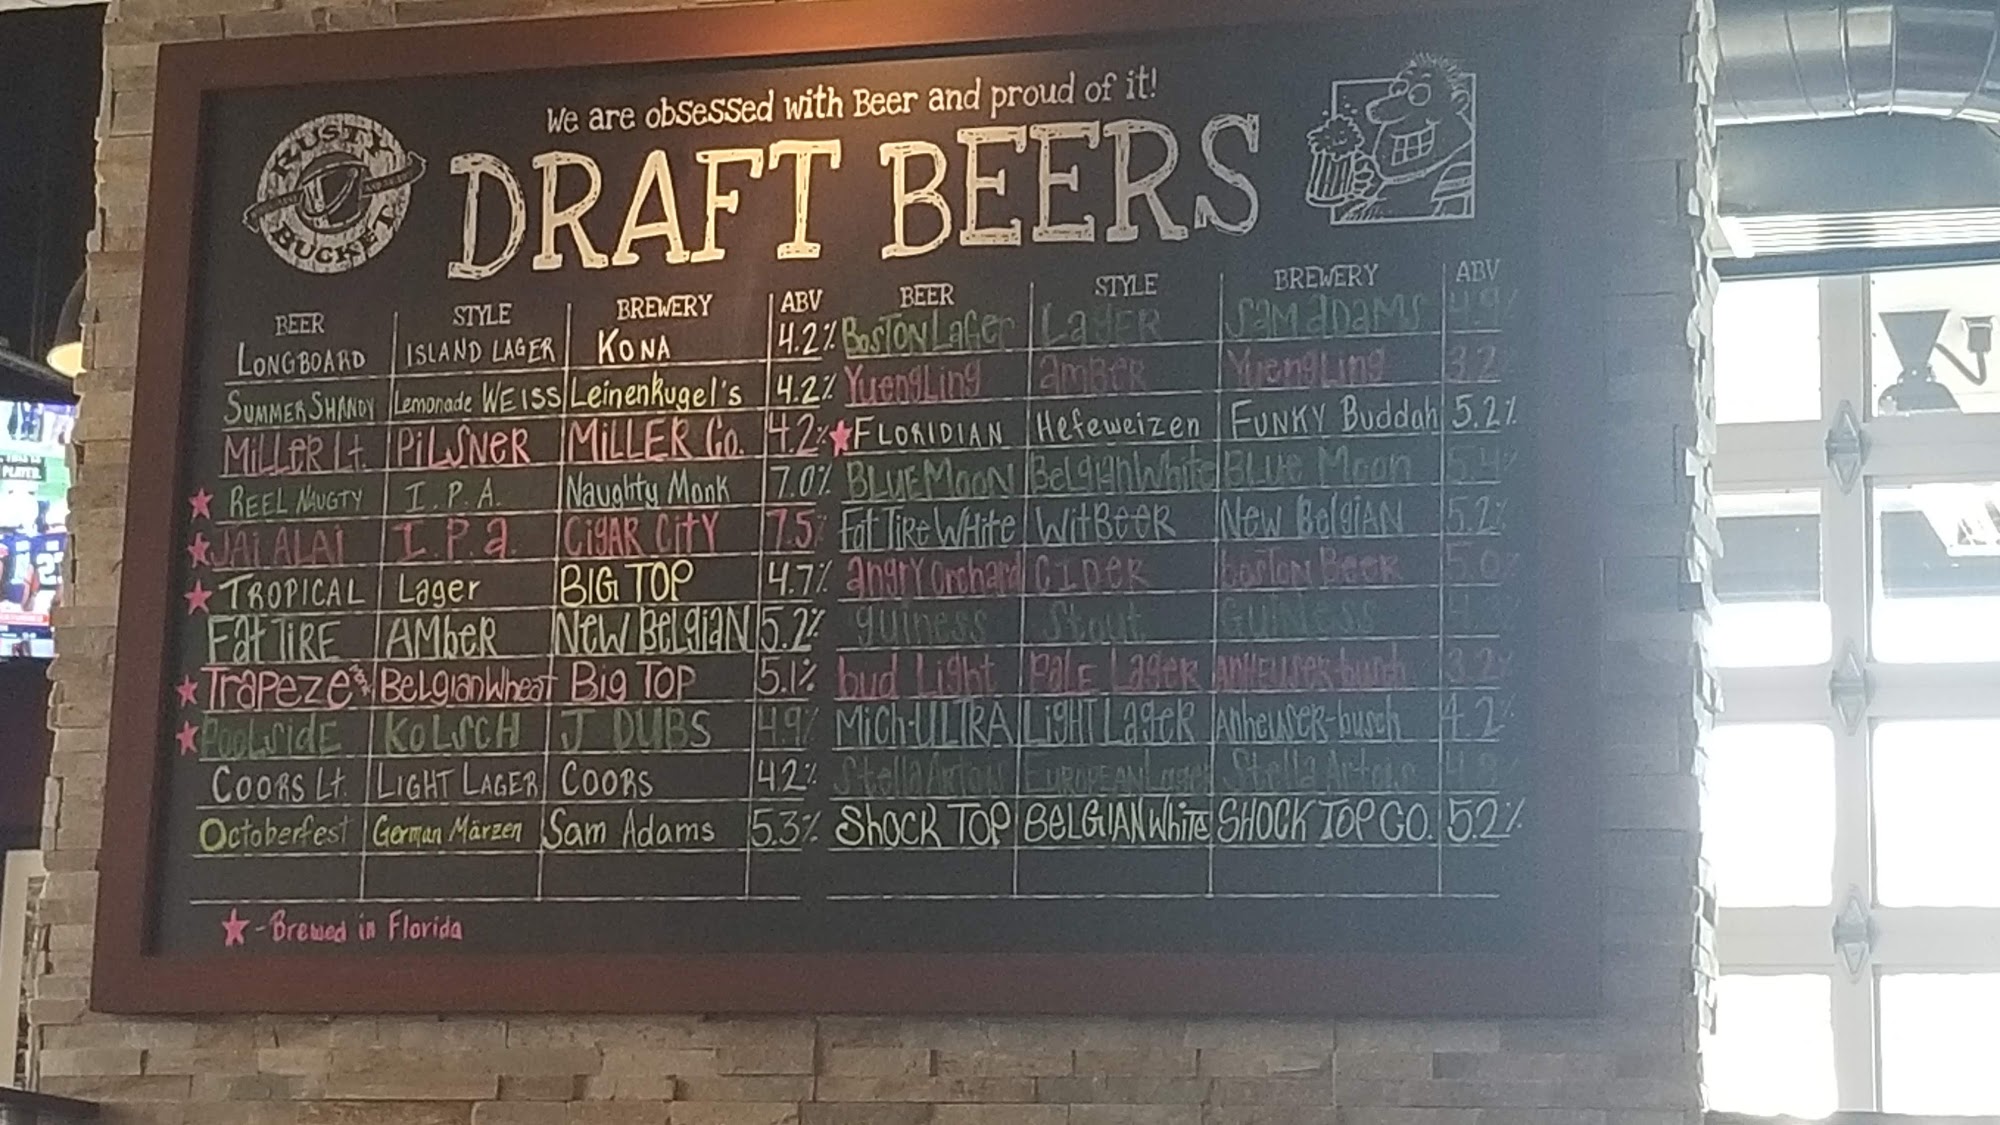 We are obsessed with Beer and proud of it!
RUSTY
BUCKET
DRAFT BEERS
BEER STYLE BREWERY ABV
LONGBOARD ISLAND LAGER KONA 4.2%
SUMMER SHANDY Lemonade WEISS Leinenkugel's 4.2%
MILLER Lt. PILSNER MILLER Co. 4.2%
★ REEL NAUGTY I.P.A. Naughty Monk 7.0%
★ JAI ALAI I.P.a. CIGAR CITY 7.5%
★ TROPICAL Lager BIG TOP 4.7%
Fat TIRE AMbER NEW BElgiAN 5.2%
★ Trapeze BelgianWheat Big TOP 5.1%
★ POOLSIDE KOLSCH J DUBS 4.9%
COORS Lt. LIGHT LAGER COORS 4.2%
Octoberfest German Märzen Sam Adams 5.3%
BEER STYLE BREWERY ABV
BOSTON Lager LAGER SAM ADAMS 4.9%
YuengLing amBER YuengLing 3.2
★ FLORIDIAN Hefeweizen FUNKY Buddah 5.2%
BLUE MOON Belgian White BLUE MOON 5.4%
Fat TIRE WHite WITBEER NEW BElgiAN 5.2%
angry Orchard CIDER boston Beer 5.0%
guiness Stout GUINESS
bud Light PALE Lager ANHEUSER-busch 3.2%
Mich-ULTRA LIGHT Lager Anheuser-busch 4.2%
Stella Artois EUROPEAN Lager Stella Artois 4.8%
SHOCK TOP BELGIAN White SHOCK TOP CO. 5.2%
★ - Brewed in Florida